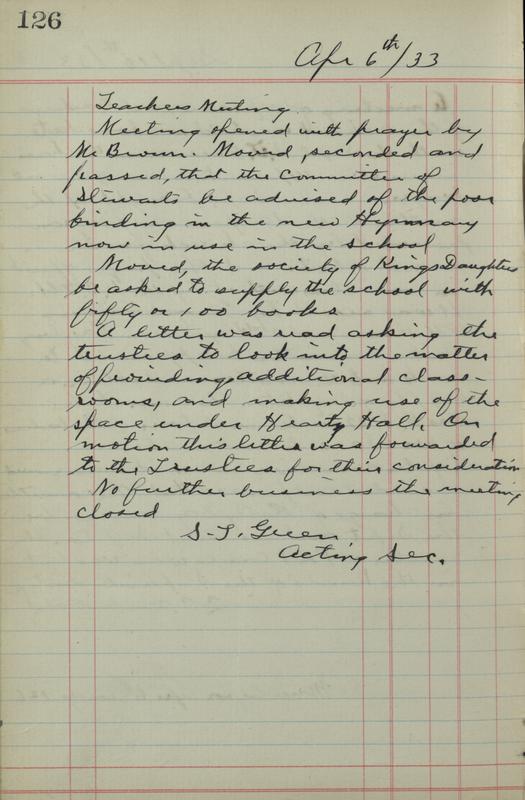 126
Apr 6th/33
Teachers Meeting
Meeting opened with prayer by
Mr Brown. Moved, seconded and
passed, that the Committee of
Stewarts be advised of the poor
binding in the new Hymnary
now in use in the school
Moved, the society of Kings Daughters
be asked to supply the school with
fifty or 100 books
A letter was read asking the
trustees to look into the matter
of providing additional class-
rooms, and making use of the
space under Hearty Hall. On
motion this letter was forwarded
to the Trustees for their consideration
No further business the meeting
closed
S. T. Green
Acting Sec.